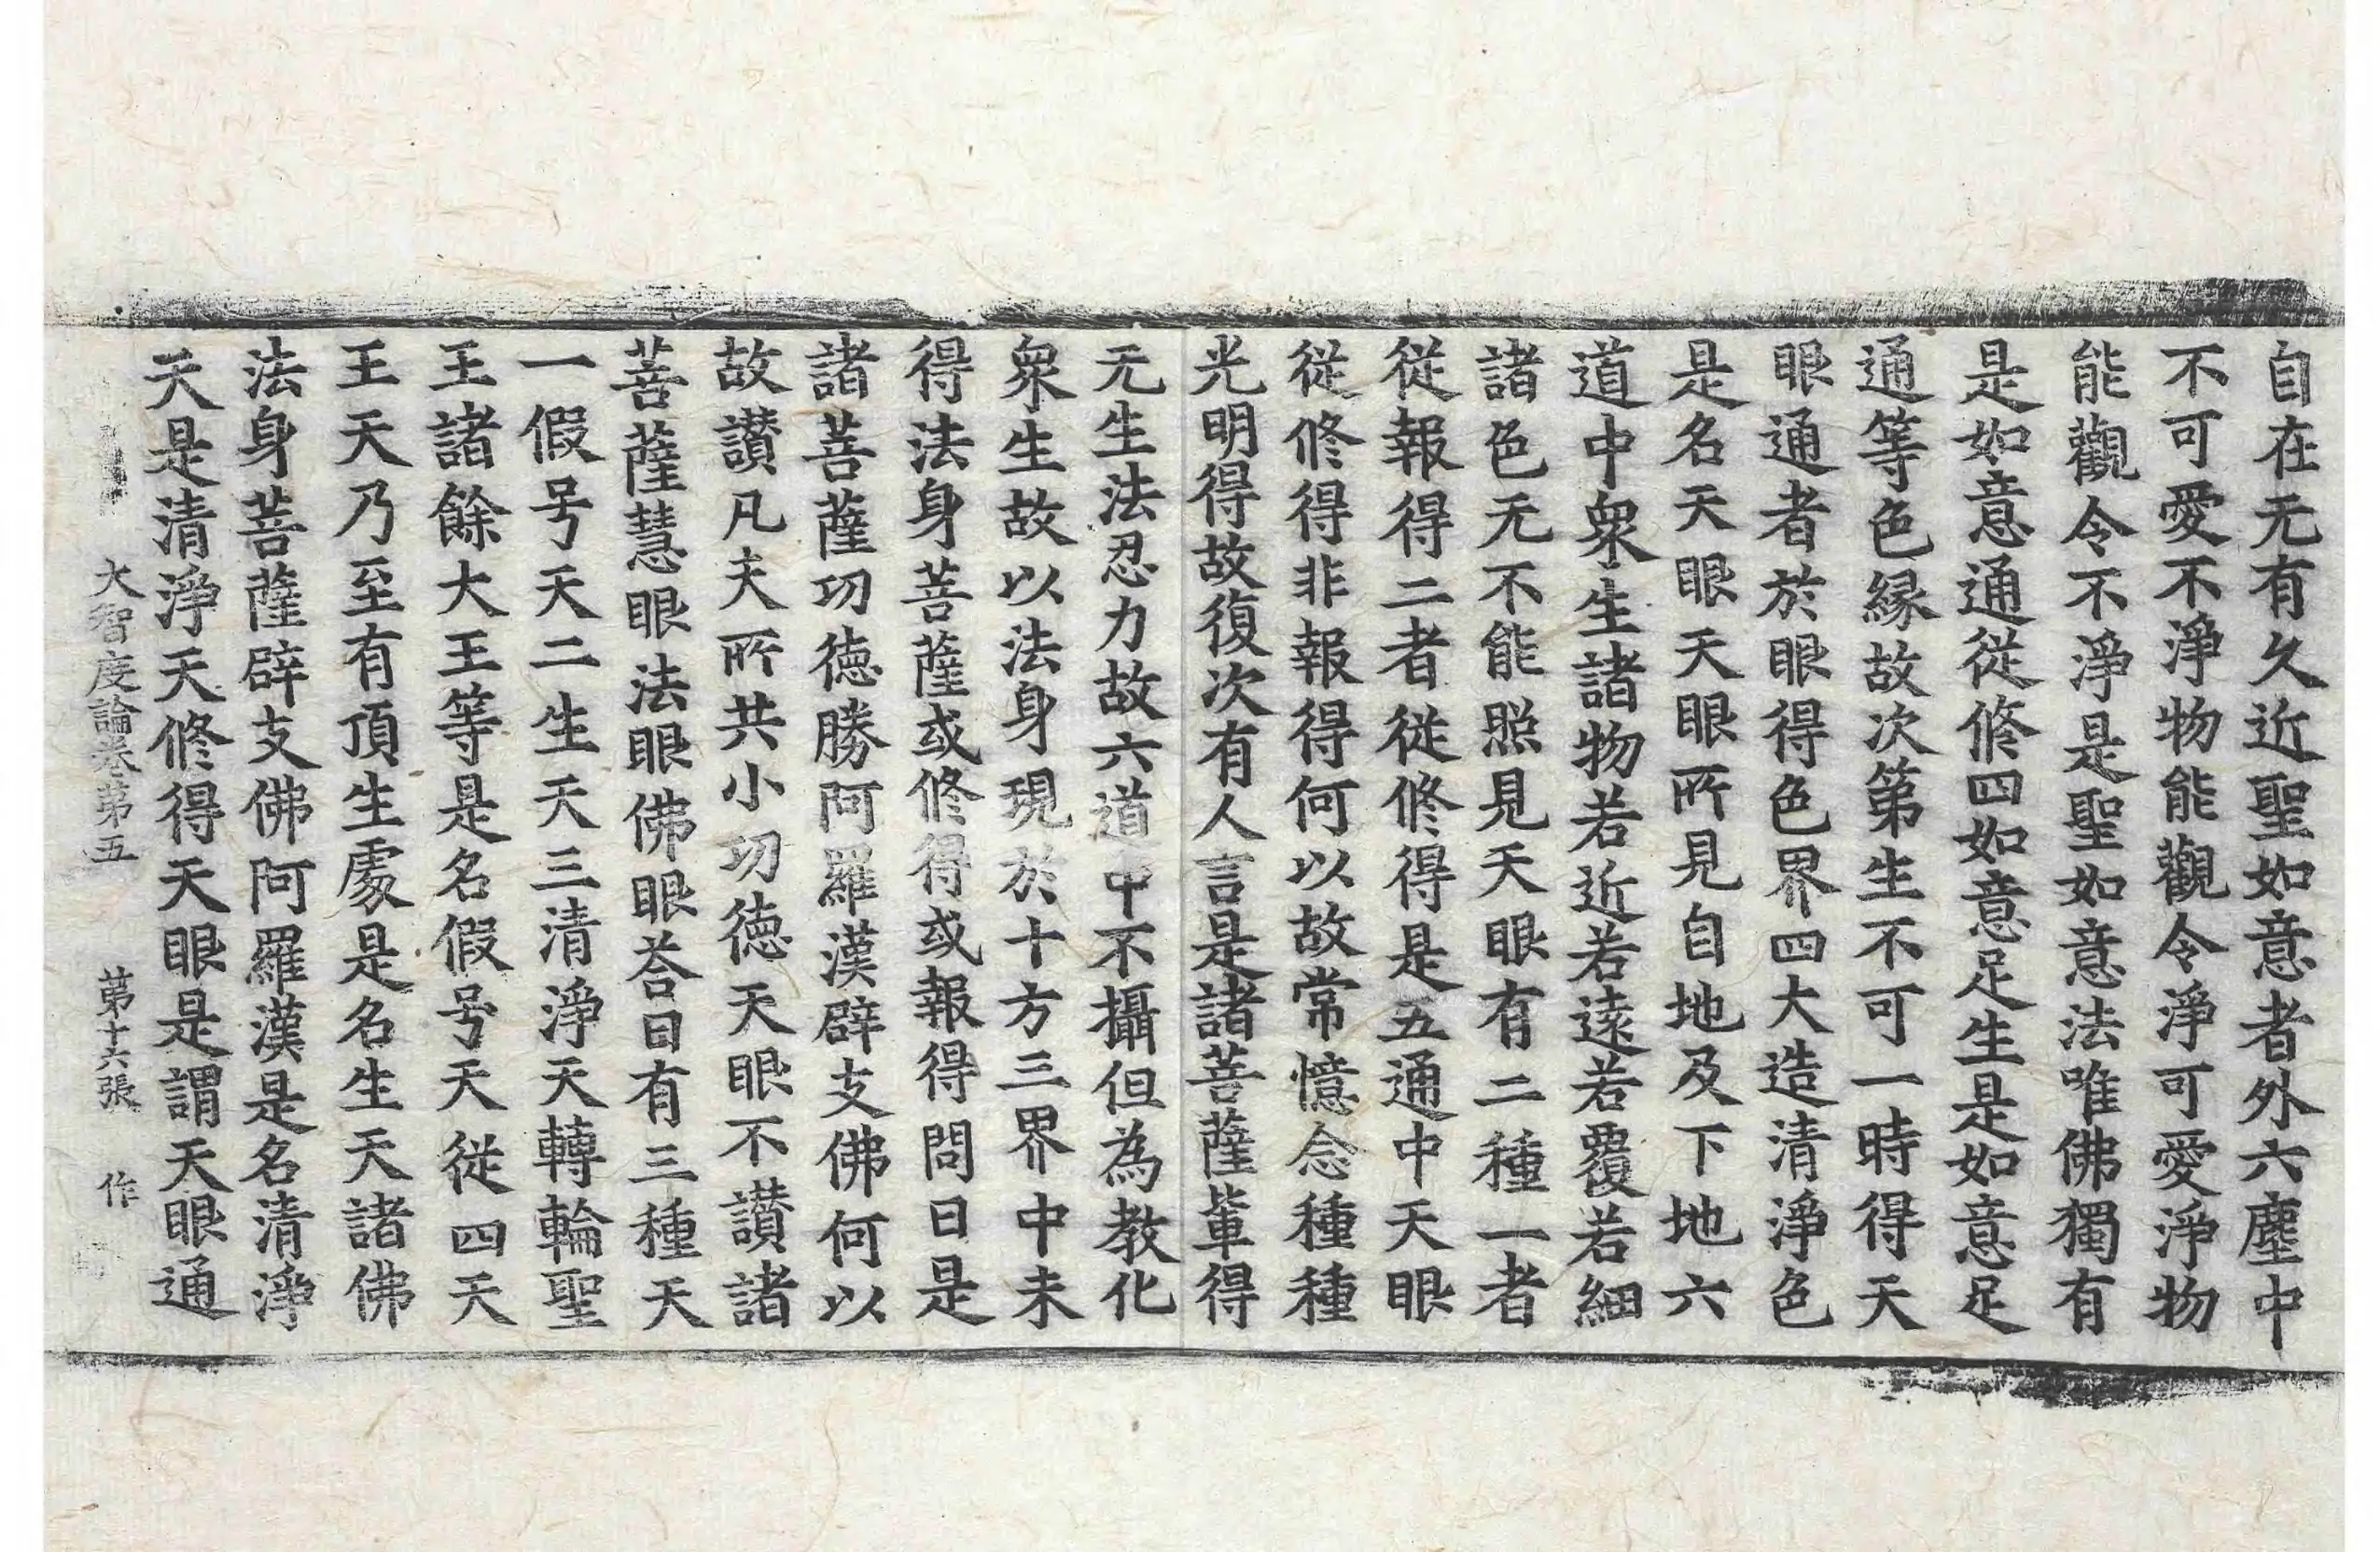 自在无有久近聖如意者外六塵中
不可愛不淨物能觀令淨可愛淨物
能觀令不淨是聖如意法唯佛獨有
是如意通從修四如意足生是如意足
通等色縁故次第生不可一時得天
眼通者於眼得色界四大造清淨色
是名天眼天眼所見自地及下地六
道中衆生諸物若近若遠若覆若細
諸色无不能照見天眼有二種一者
從報得二者從修得是五通中天眼
從修得非報得何以故常憶念種種
光明得故復次有人言是諸菩薩軰得
无生法忍力故六道中不攝但為教化
衆生故以法身現於十方三界中未
得法身菩薩或修得或報得問曰是
諸菩薩功徳勝阿羅漢辟支佛何以
故讃凡夫所共小功徳天眼不讃諸
菩薩慧眼法眼佛眼荅曰有三種天
一假号天二生天三清淨天轉輪聖
王諸餘大王等是名假号天從四天
王天乃至有頂生處是名生天諸佛
法身菩薩辟支佛阿羅漢是名清淨
天是清淨天修得天眼是謂天眼通
大智度論卷第五 第十六張 作